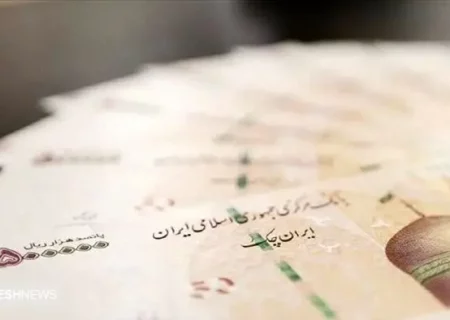 بانک مرکزی جمهوری اسلامی ایران
ایران چک
پانصد هزار ریال
ESHNEWS